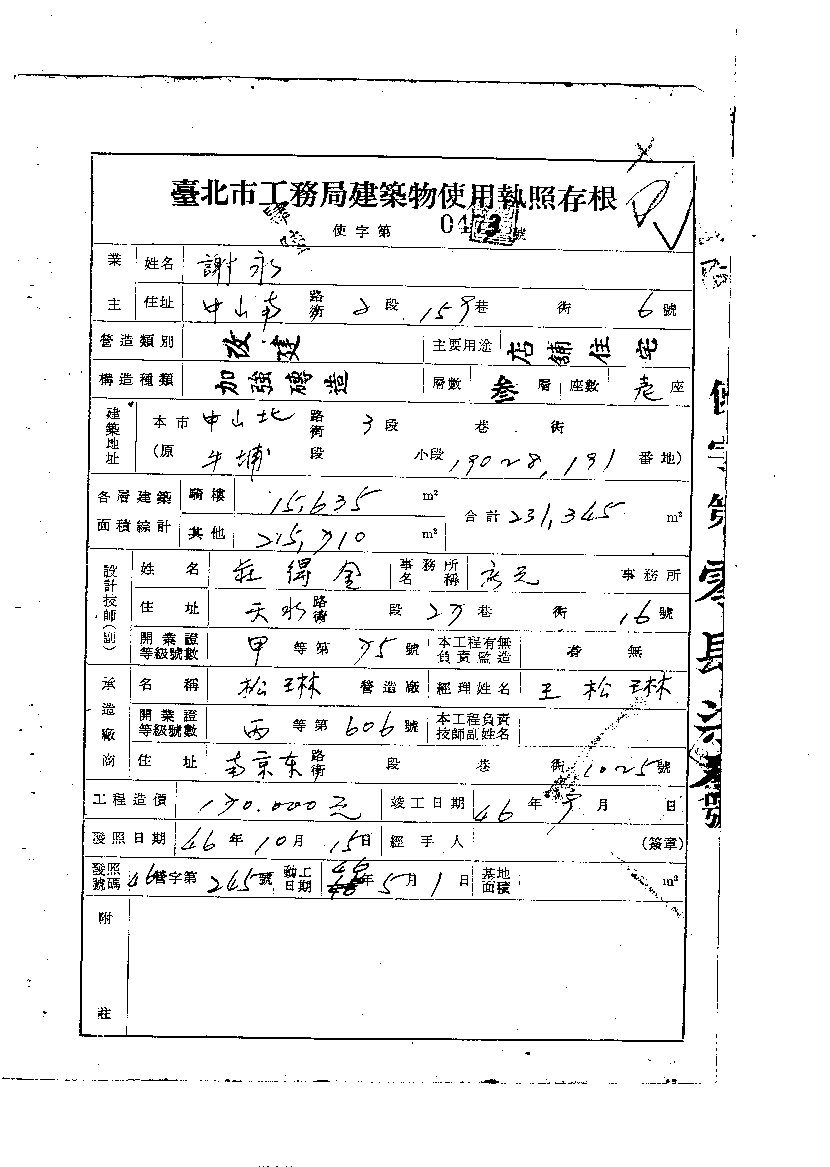 臺北市工務局建築物使用執照存根
使字第 0473 號
業主 姓名 謝永
住址 中山南 路街 2 段 159 巷 街 6 號
營造類別 改建 主要用途 店舖住宅
構造種類 加強磚造 層數 叁 層 座數 壱 座
建築地址 本市 中山北 路街 3 段 巷 街
(原 牛埔 段 小段 190-28, 191 番地)
各層建築面積總計 騎樓 15.635 m² 合計 231,345 m²
其他 215,710 m²
設計技師(副) 姓名 莊得金 事務所名稱 事務所
住址 天水 路街 段 27 巷 街 16 號
開業證等級號數 甲 等第 75 號 本工程有無負責監造 無
承造廠商 名稱 松琳 營造廠 經理姓名 王松琳
開業證等級號數 丙 等第 606 號 本工程負責技師副姓名
住址 南京东 路街 段 巷 街 1025 號
工程造價 170.000元 竣工日期 46 年 9 月 日
發照日期 46 年 10 月 15 日 經手人 (簽章)
發照號碼 46 營字第 245 號 動工日期 46 年 5 月 1 日 基地面積 m²
附註